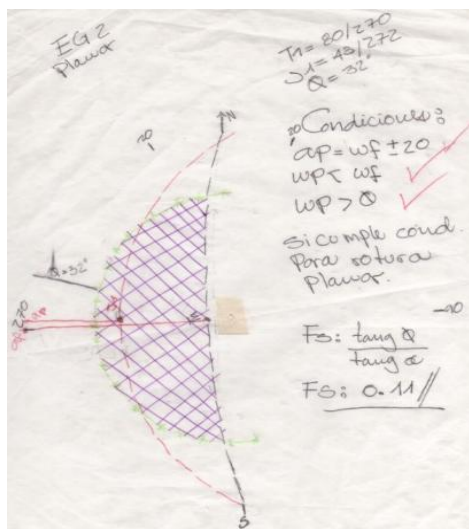 EG2
Planar
T1= 80/270
J1= 43/272
Ø= 32°
Condiciones:
ap = wf ± 20
wp < wf
wp > Ø
Si cumple cond.
Para rotura
Planar.
Fs: tang Ø
tang α
FS: 0.11 //
N
20
20
Ø=32°
270
S